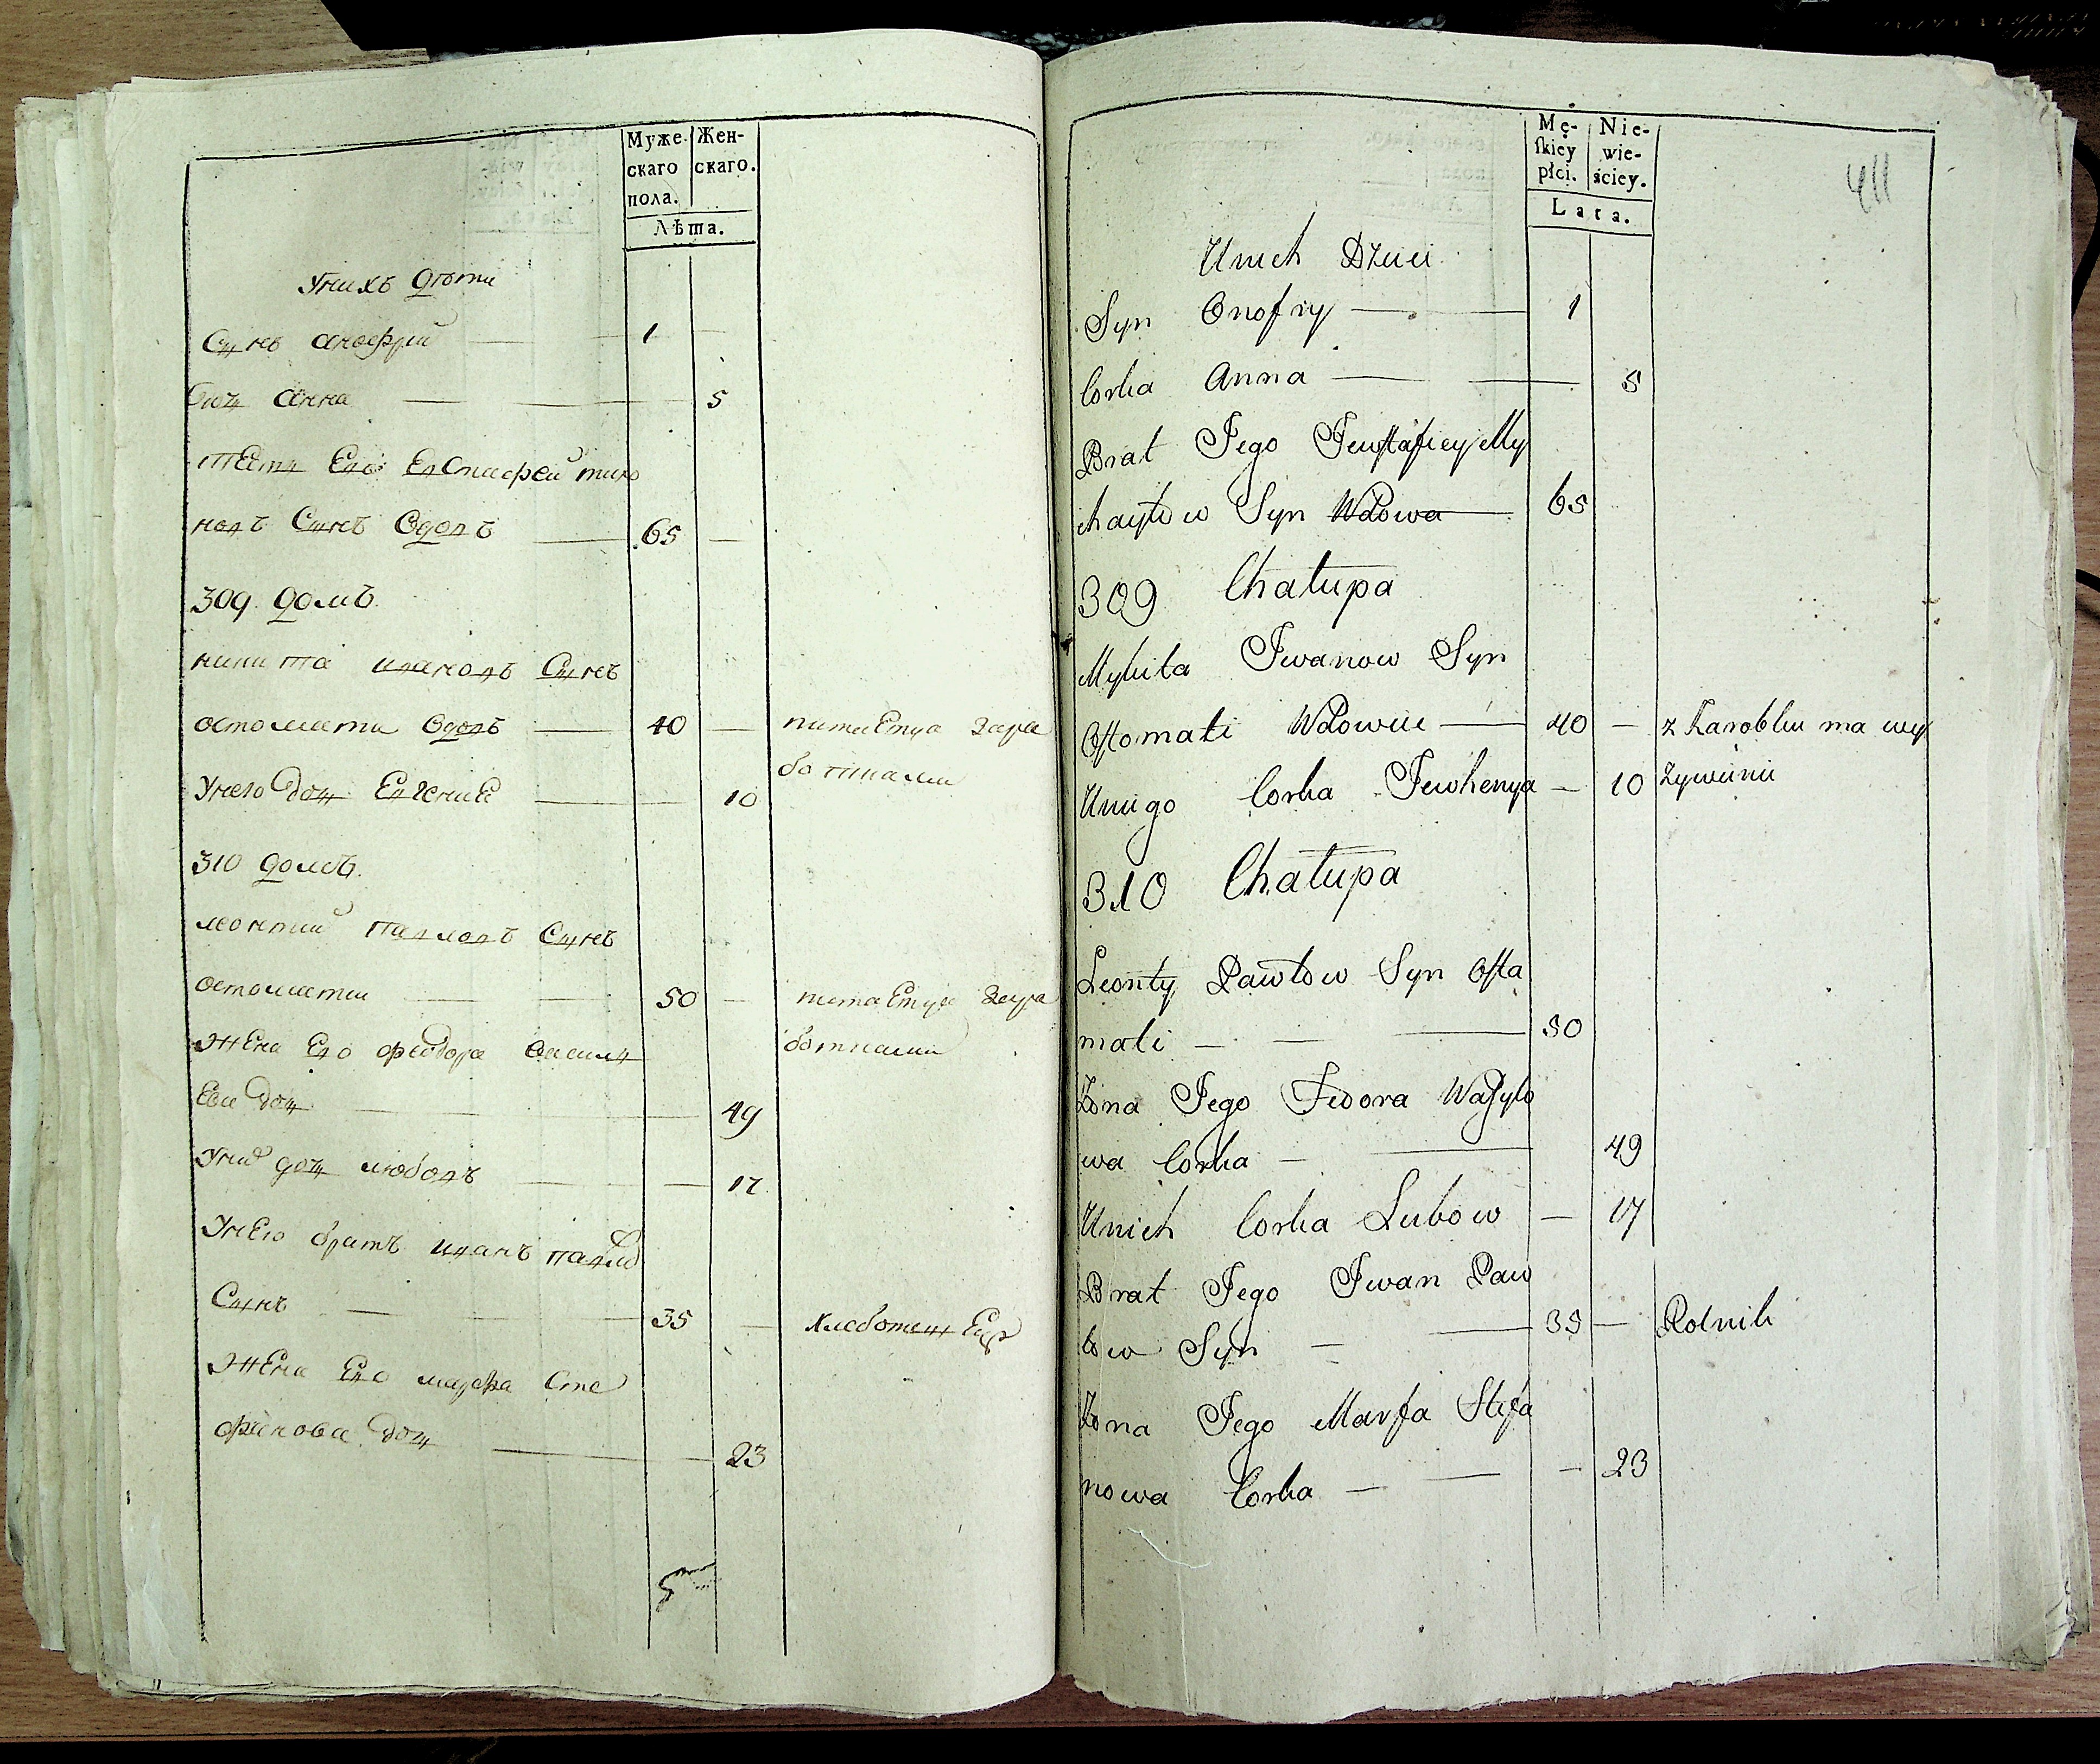 Муже- Жен-
скаго скаго.
пола.
Лѣта.
Унихъ дѣти
Сынъ анофрий 1
дочь анна 5
Тесть Его Евстафей тихо
новъ Сынъ Вдовъ 65
309 домъ
никита ивановъ Сынъ
остомати Вдовъ 40 питаЕтца зара
ботками
Унего дочь Евгения 10
310 домъ
леонтий павловъ Сынъ
остомати 50 питаЕтца зара
ботками
Жена Его феодора васил
Ева дочь 49
Унихъ дочь любовъ 17
УнЕго братъ иванъ павло
Сынъ 35
Жена Его марфа Сте
фанова дочь 23
5
Mę- Nie-
skiey wie-
płci. ściey.
Lata.
411
Unich Dzieci
Syn Onofry 1
Corka Anna 5
Brat Jego Jewstafiey My
chayłow Syn Wdowa 65
309 Chałupa
Mykita Iwanow Syn
Ostomati Wdowiec 40 z Zarobku ma wy
Żywienie
Uniego Corka Jewhenya 10
310 Chałupa
Leonty Pawłow Syn Osta
mati 50
Żona Jego Fedora Wasylo
wa Corka 49
Unich Corka Lubow 17
Brat Jego Iwan Paw
łow Syn 35 Rolnik
Żona Jego Marfa Stefa
nowa Corka 23